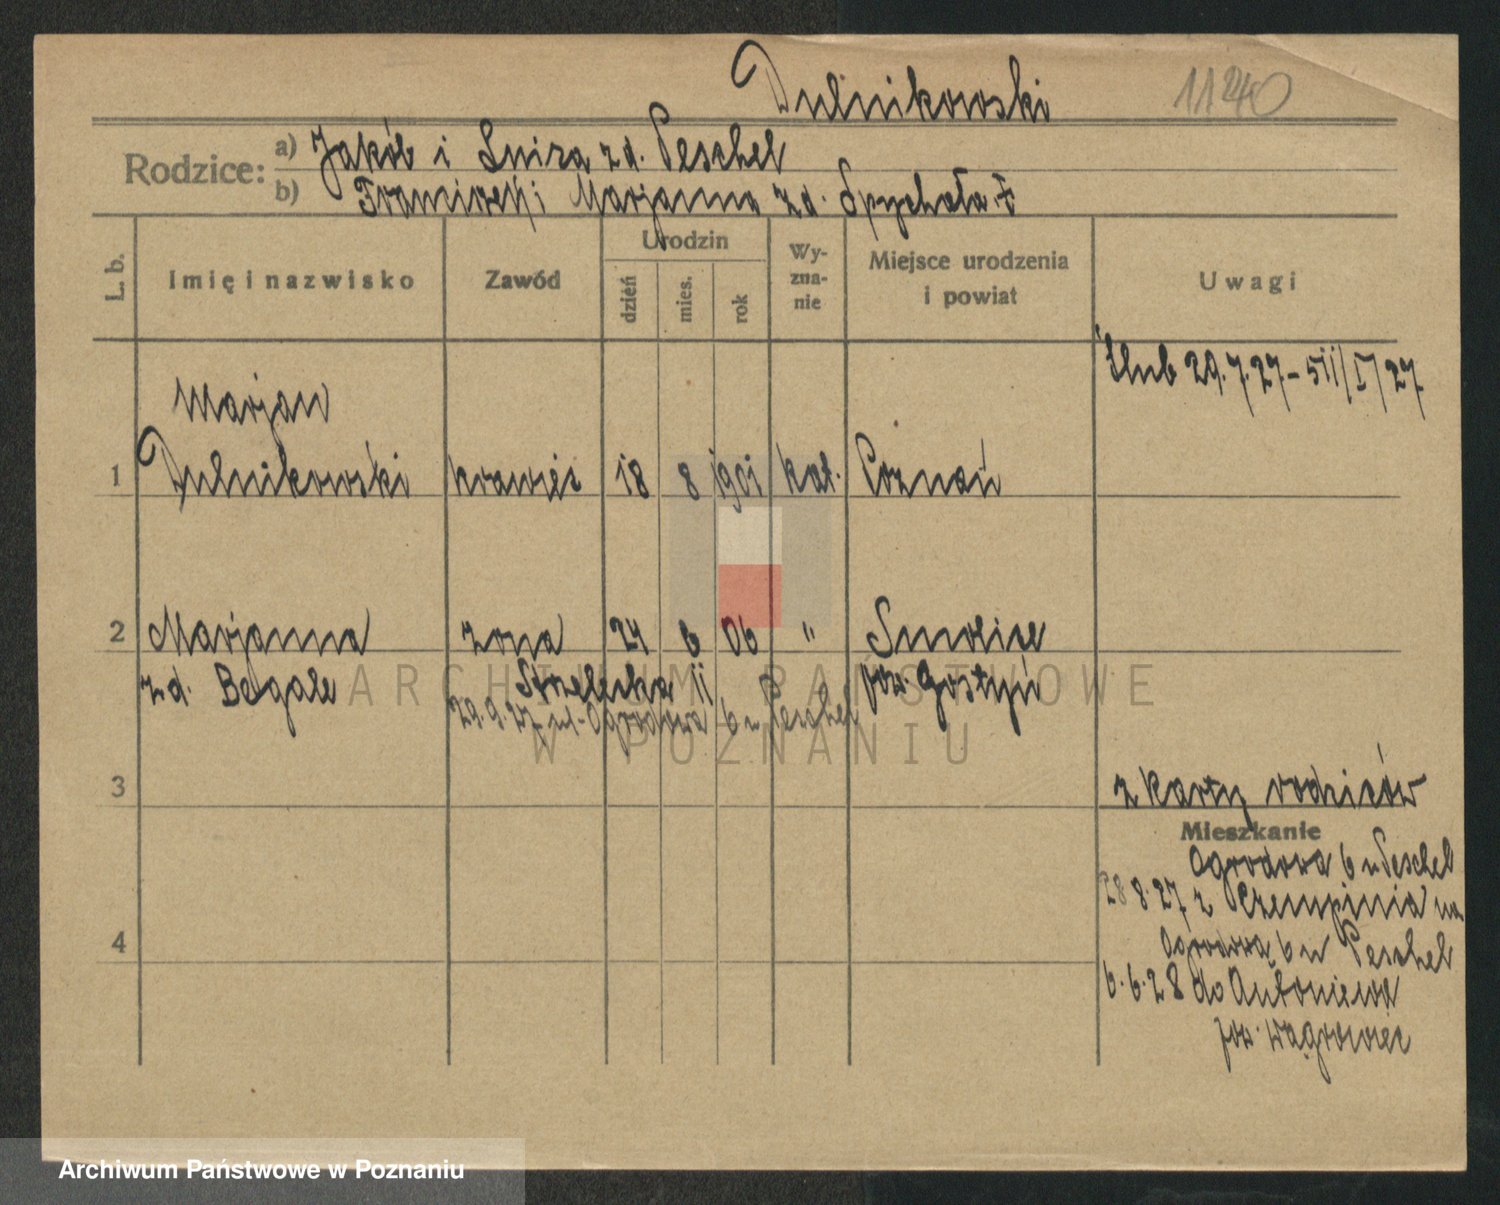 Dulnikowski 11240
Rodzice: a) Jakób i Luiza zd. Peschel
b) Franciszek i Marjanna zd. Spychała
L. b. Imię i nazwisko Zawód Urodzin dzień mies. rok Wyznanie Miejsce urodzenia i powiat Uwagi
Ślub 29.7.27 - 511/I/27
Marjan
1 Dulnikowski krawiec 18 8 1901 kat. Poznań
2 Marjanna żona 24 6 06 " Smolice
zd. Strzelecka 11 pow. Gostyń
29.9.27 ul. Ogrodowa 6 u Peschel
ARCHIWUM PAŃSTWOWE
W POZNANIU
3 z karty rodziców
Mieszkanie
Ogrodowa 6 u Peschel
28.8.27 z Czempinia na
Ogrodową 6 u Peschel
4
6.6.28 do Antoniewa
pow. Wągrowiec
Archiwum Państwowe w Poznaniu